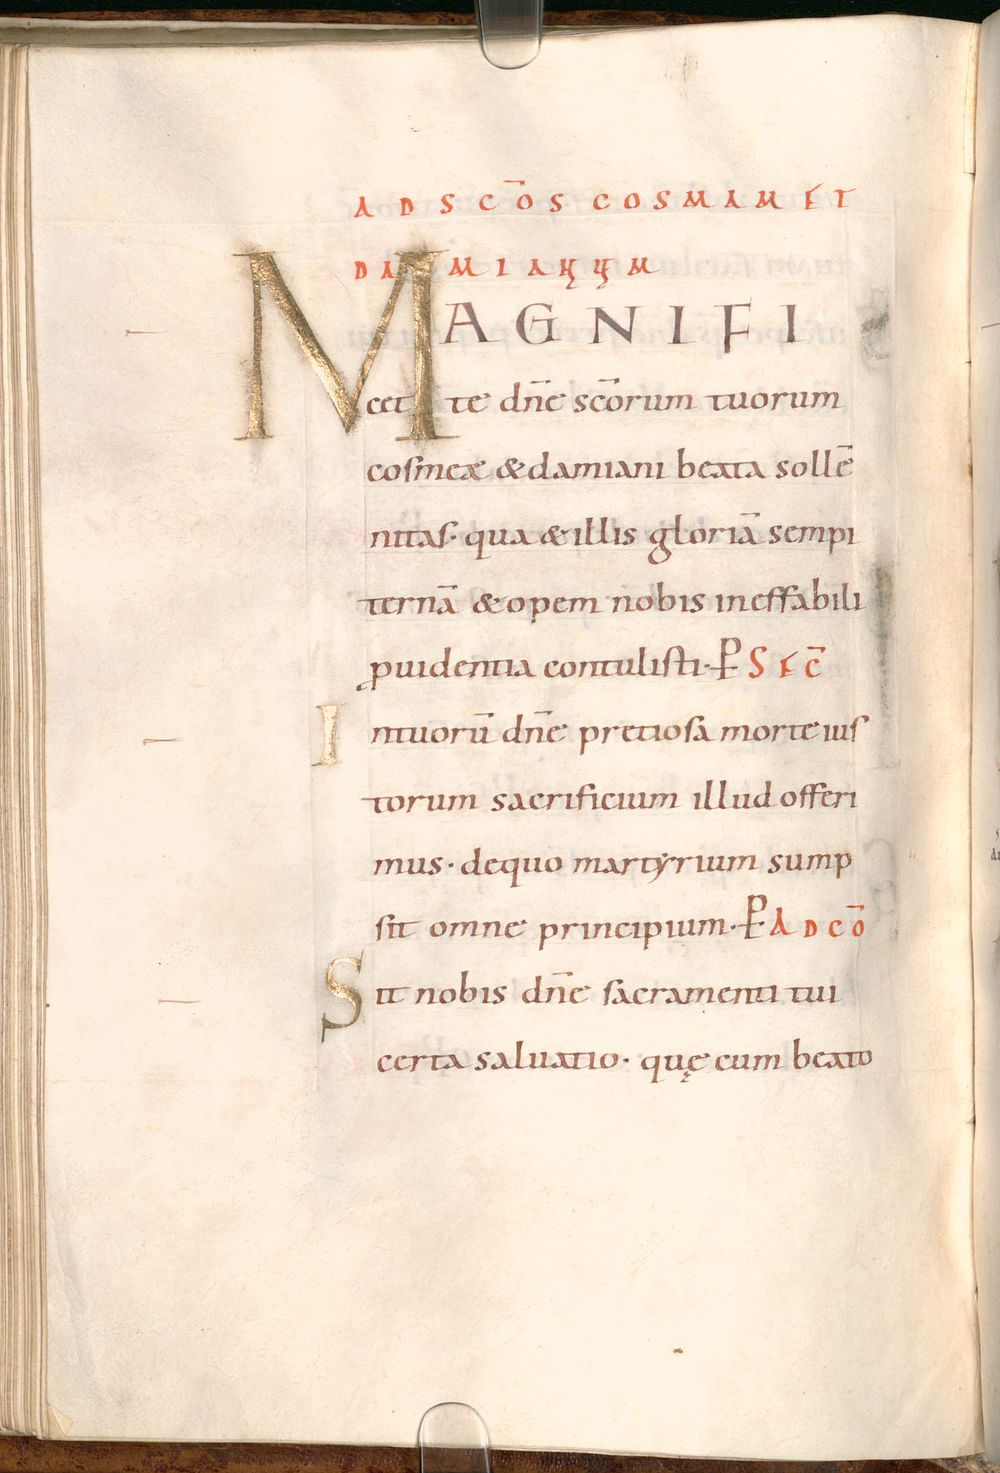 AD SC̄OS COSMAM ET
DAMIANUM
MAGNIFI
cet te dn̄e sc̄orum tuorum
cosmeæ & damiani beata sollē
nitas· qua & illis gloriā sempi
ternā & opem nobis ineffabili
ꝓuidentia contulisti· ꝑ SEC̄
Intuorū dn̄e pretiosa morte ius
torum sacrificium illud offeri
mus· dequo martyrium sump
sit omne principium· ꝑ AD CŌ
Sit nobis dn̄e sacramenti tui
certa saluatio· quę cum beato